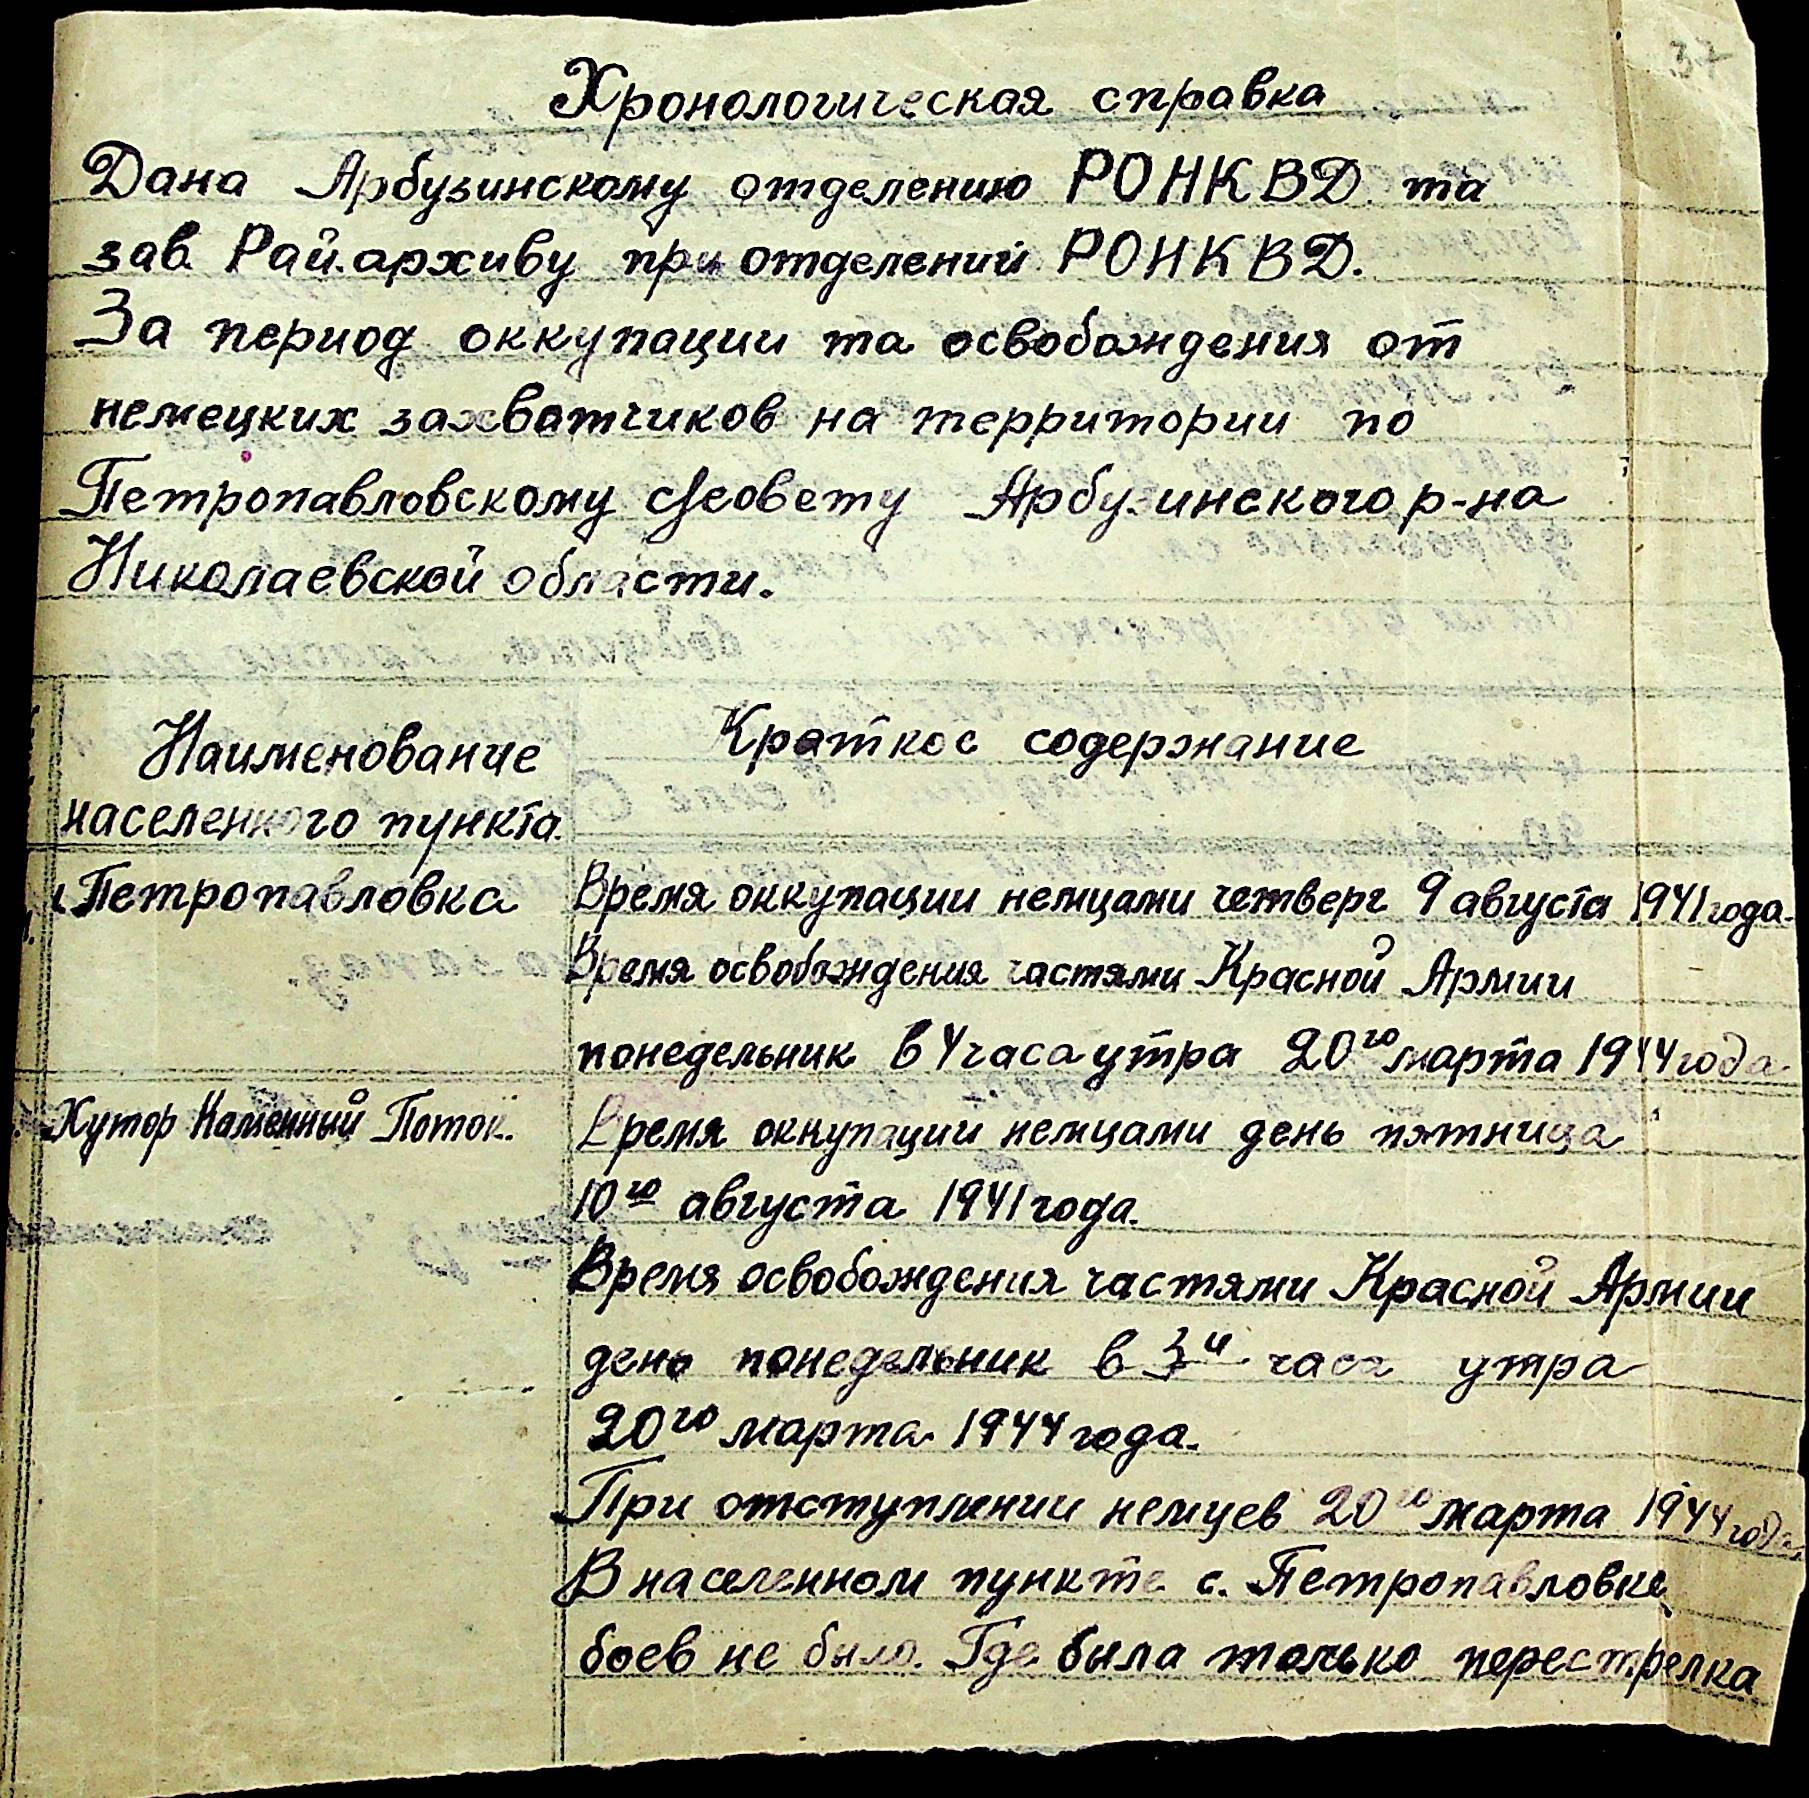 37
Хронологическая справка
Дана Арбузинскому отделению РОНКВД та
зав. Рай.архиву при отделений РОНКВД.
За период оккупации та освобождения от
немецких захватчиков на территории по
Петропавловскому с/совету Арбузинского р-на
Николаевской области.
Наименование
населенного пункта.
Краткое содержание
с. Петропавловка
Время оккупации немцами четверг 9 августа 1941 года.
Время освобождения частями Красной Армии
понедельник в 4 часа утра 20го марта 1944 года.
Хутор Каменный Поток.
Время оккупации немцами день пятница
10го августа 1941 года.
Время освобождения частями Красной Армии
день понедельник в 3и часа утра
20го марта 1944 года.
При отступлении немцев 20го марта 1944 года,
В населенном пункте с. Петропавловке
боев не было. Где была только перестрелка